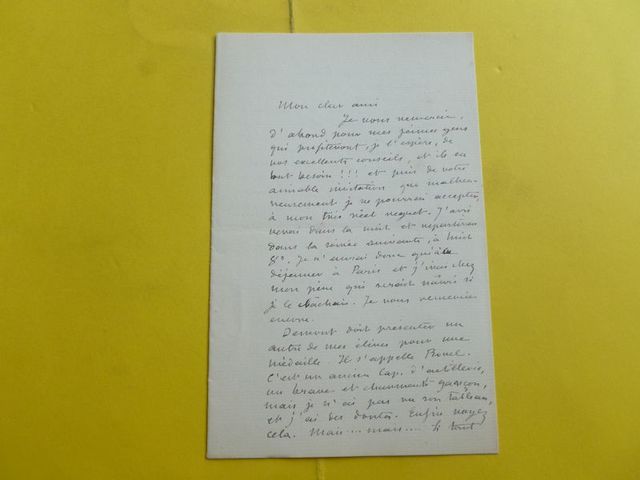 Mon cher ami
Je vous remercie,
d'abord pour mes jeunes gens
qui profiteront, je l'espère, de
vos excellents conseils, et ils en
ont besoin !!! et puis de votre
aimable invitation que malheu-
reusement je ne pourrai accepter,
à mon très réel regret. J'arri-
verai dans la nuit et repartirai
dans la soirée suivante, à
8h. Je n'aurai donc qu'à
déjeuner à Paris et j'irai chez
mon père qui serait navré si
je le lâchais. Je vous remercie
encore.
Demont doit présenter un
autre de mes élèves pour une
médaille. Il s'appelle
C'est un ancien Cap. d'artillerie,
un brave et charmant garçon,
mais je n'ai pas vu son tableau,
et j'ai des doutes. Enfin voyez
cela. Mais.... mais.... le tout